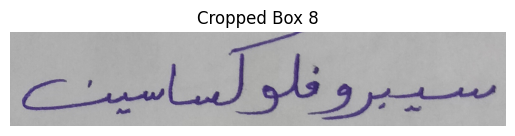 Cropped Box 8
سيبروفلوكساسين